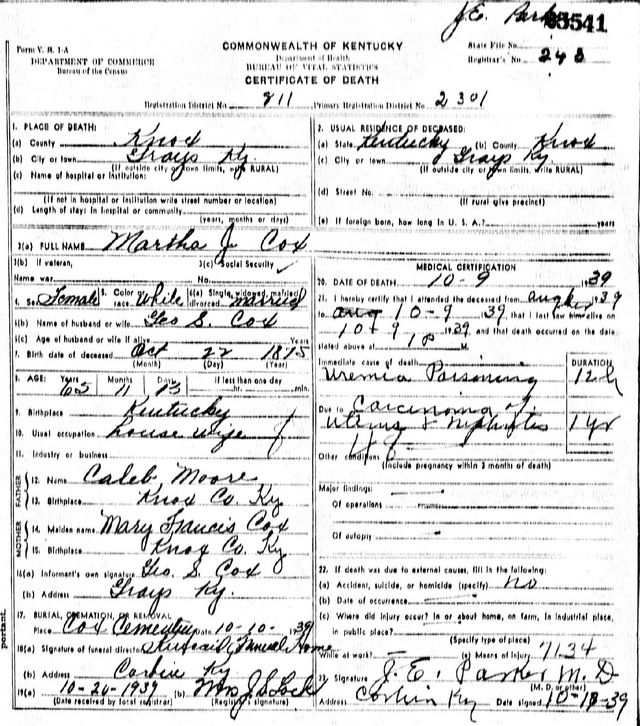 J. E. Parker 
Form V. S. 1-A
DEPARTMENT OF COMMERCE
Bureau of the Census
COMMONWEALTH OF KENTUCKY
Department of Health
BUREAU OF VITAL STATISTICS
CERTIFICATE OF DEATH
State File No. 541
Registrar's No. 243
Registration District No. 811 Primary Registration District No. 2301
1. PLACE OF DEATH:
(a) County Knox
(b) City or town Grays Ky.
(If outside city or town limits, write RURAL)
(c) Name of hospital or institution:
(If not in hospital or institution write street number or location)
(d) Length of stay: In hospital or community
(years, months or days)
2. USUAL RESIDENCE OF DECEASED:
(a) State Kentucky (b) County Knox
(c) City or town Grays Ky.
(If outside city or town limits, write RURAL)
(d) Street No.
(If rural give precinct)
(e) If foreign born, how long in U. S. A.? years
3(a) FULL NAME Martha J Cox
3(b) If veteran, Name war
3(c) Social Security No.
4. Sex Female 5. Color or race White 6(a) Single, widowed, married, divorced married
6(b) Name of husband or wife Geo S. Cox
6(c) Age of husband or wife if alive Years
7. Birth date of deceased Oct 22 1875
(Month) (Day) (Year)
8. AGE: Years Months Days If less than one day
11 13 hr. min.
9. Birthplace Kentucky
10. Usual occupation house wife
11. Industry or business
FATHER
12. Name Caleb Moore
13. Birthplace Knox Co. Ky
MOTHER
14. Maiden name Mary Francis Cox
15. Birthplace Knox Co. Ky
16(a) Informant's own signature Geo. S. Cox
(b) Address Grays Ky.
17. BURIAL, CREMATION, OR REMOVAL
Place Cox Cemetery Date 10-10- 1939
18(a) Signature of funeral director Funeral Home
(b) Address Corbin Ky
19(a) 10-20-1939 (b) Mrs J S Locke
(Date received by local registrar) (Registrar's signature)
MEDICAL CERTIFICATION
20. DATE OF DEATH 10-9 1939
21. I hereby certify that I attended the deceased from aug 1939
to 10-9 39, that I last saw him alive on
10-9 1939 and that death occurred on the date
stated above at M
Immediate cause of death DURATION
Uremia Poisoning 12 h
Due to Carcinoma of
Uterus & Nephritis 1 yr
Other conditions
(Include pregnancy within 3 months of death)
Major findings:
Of operations
Of autopsy
22. If death was due to external causes, fill in the following:
(a) Accident, suicide, or homicide (specify) no
(b) Date of occurrence
(c) Where did injury occur? In or about home, on farm, in industrial place,
in public place?
(Specify type of place)
While at work? (e) Means of injury 7134
23. Signature J. E. Parker M. D
(M. D. or other)
Address Corbin Ky Date signed 10-18-39
portant.